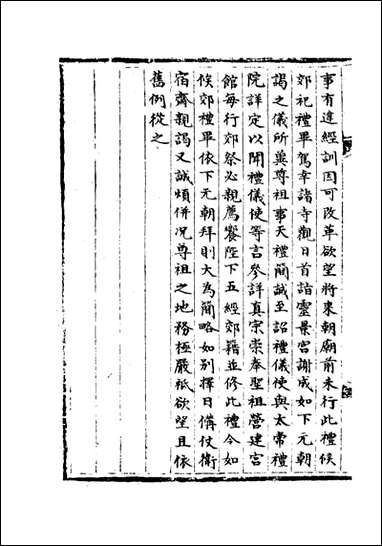 事有違經訓因可改革欲望將來朝廟前未行此禮候
郊祀禮畢駕幸諸寺觀日首詣靈景宮謝成如下元朝
謁之儀所冀尊祖事天禮簡誠至詔禮儀使與太常禮
院詳定以聞禮儀使等言參詳真宗崇奉聖祖營建宮
館每行郊祭必親薦饗陛下五經郊籍並修此禮今如
候郊禮畢依下元朝拜則大為簡略如別擇日備仗衛
宿齋親謁又誠煩併况尊祖之地務極嚴祗欲望且依
舊例從之